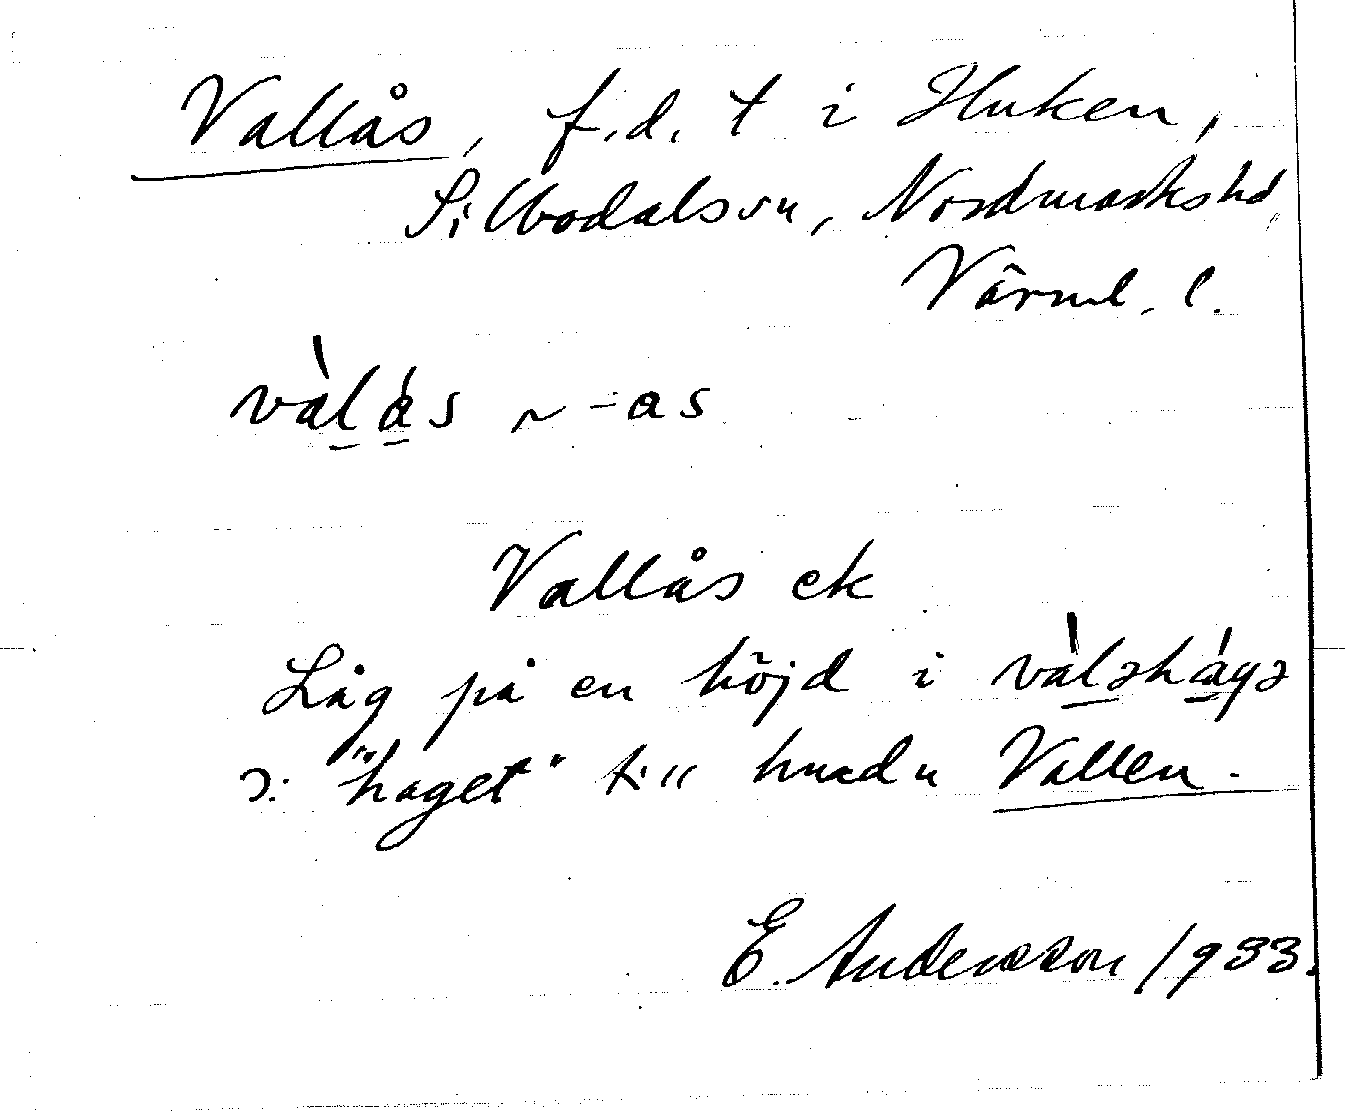 Vallås, f.d. t i Huken,
Silbodals sn, Nordmarks hd,
Värml. l.
vàl̲á̲s ~ -as
Vallås ek
Låg på en höjd i vàl̲əhá̲gə
ɔ: "haget" till hmdn Vallen.
E. Andersson 1933.